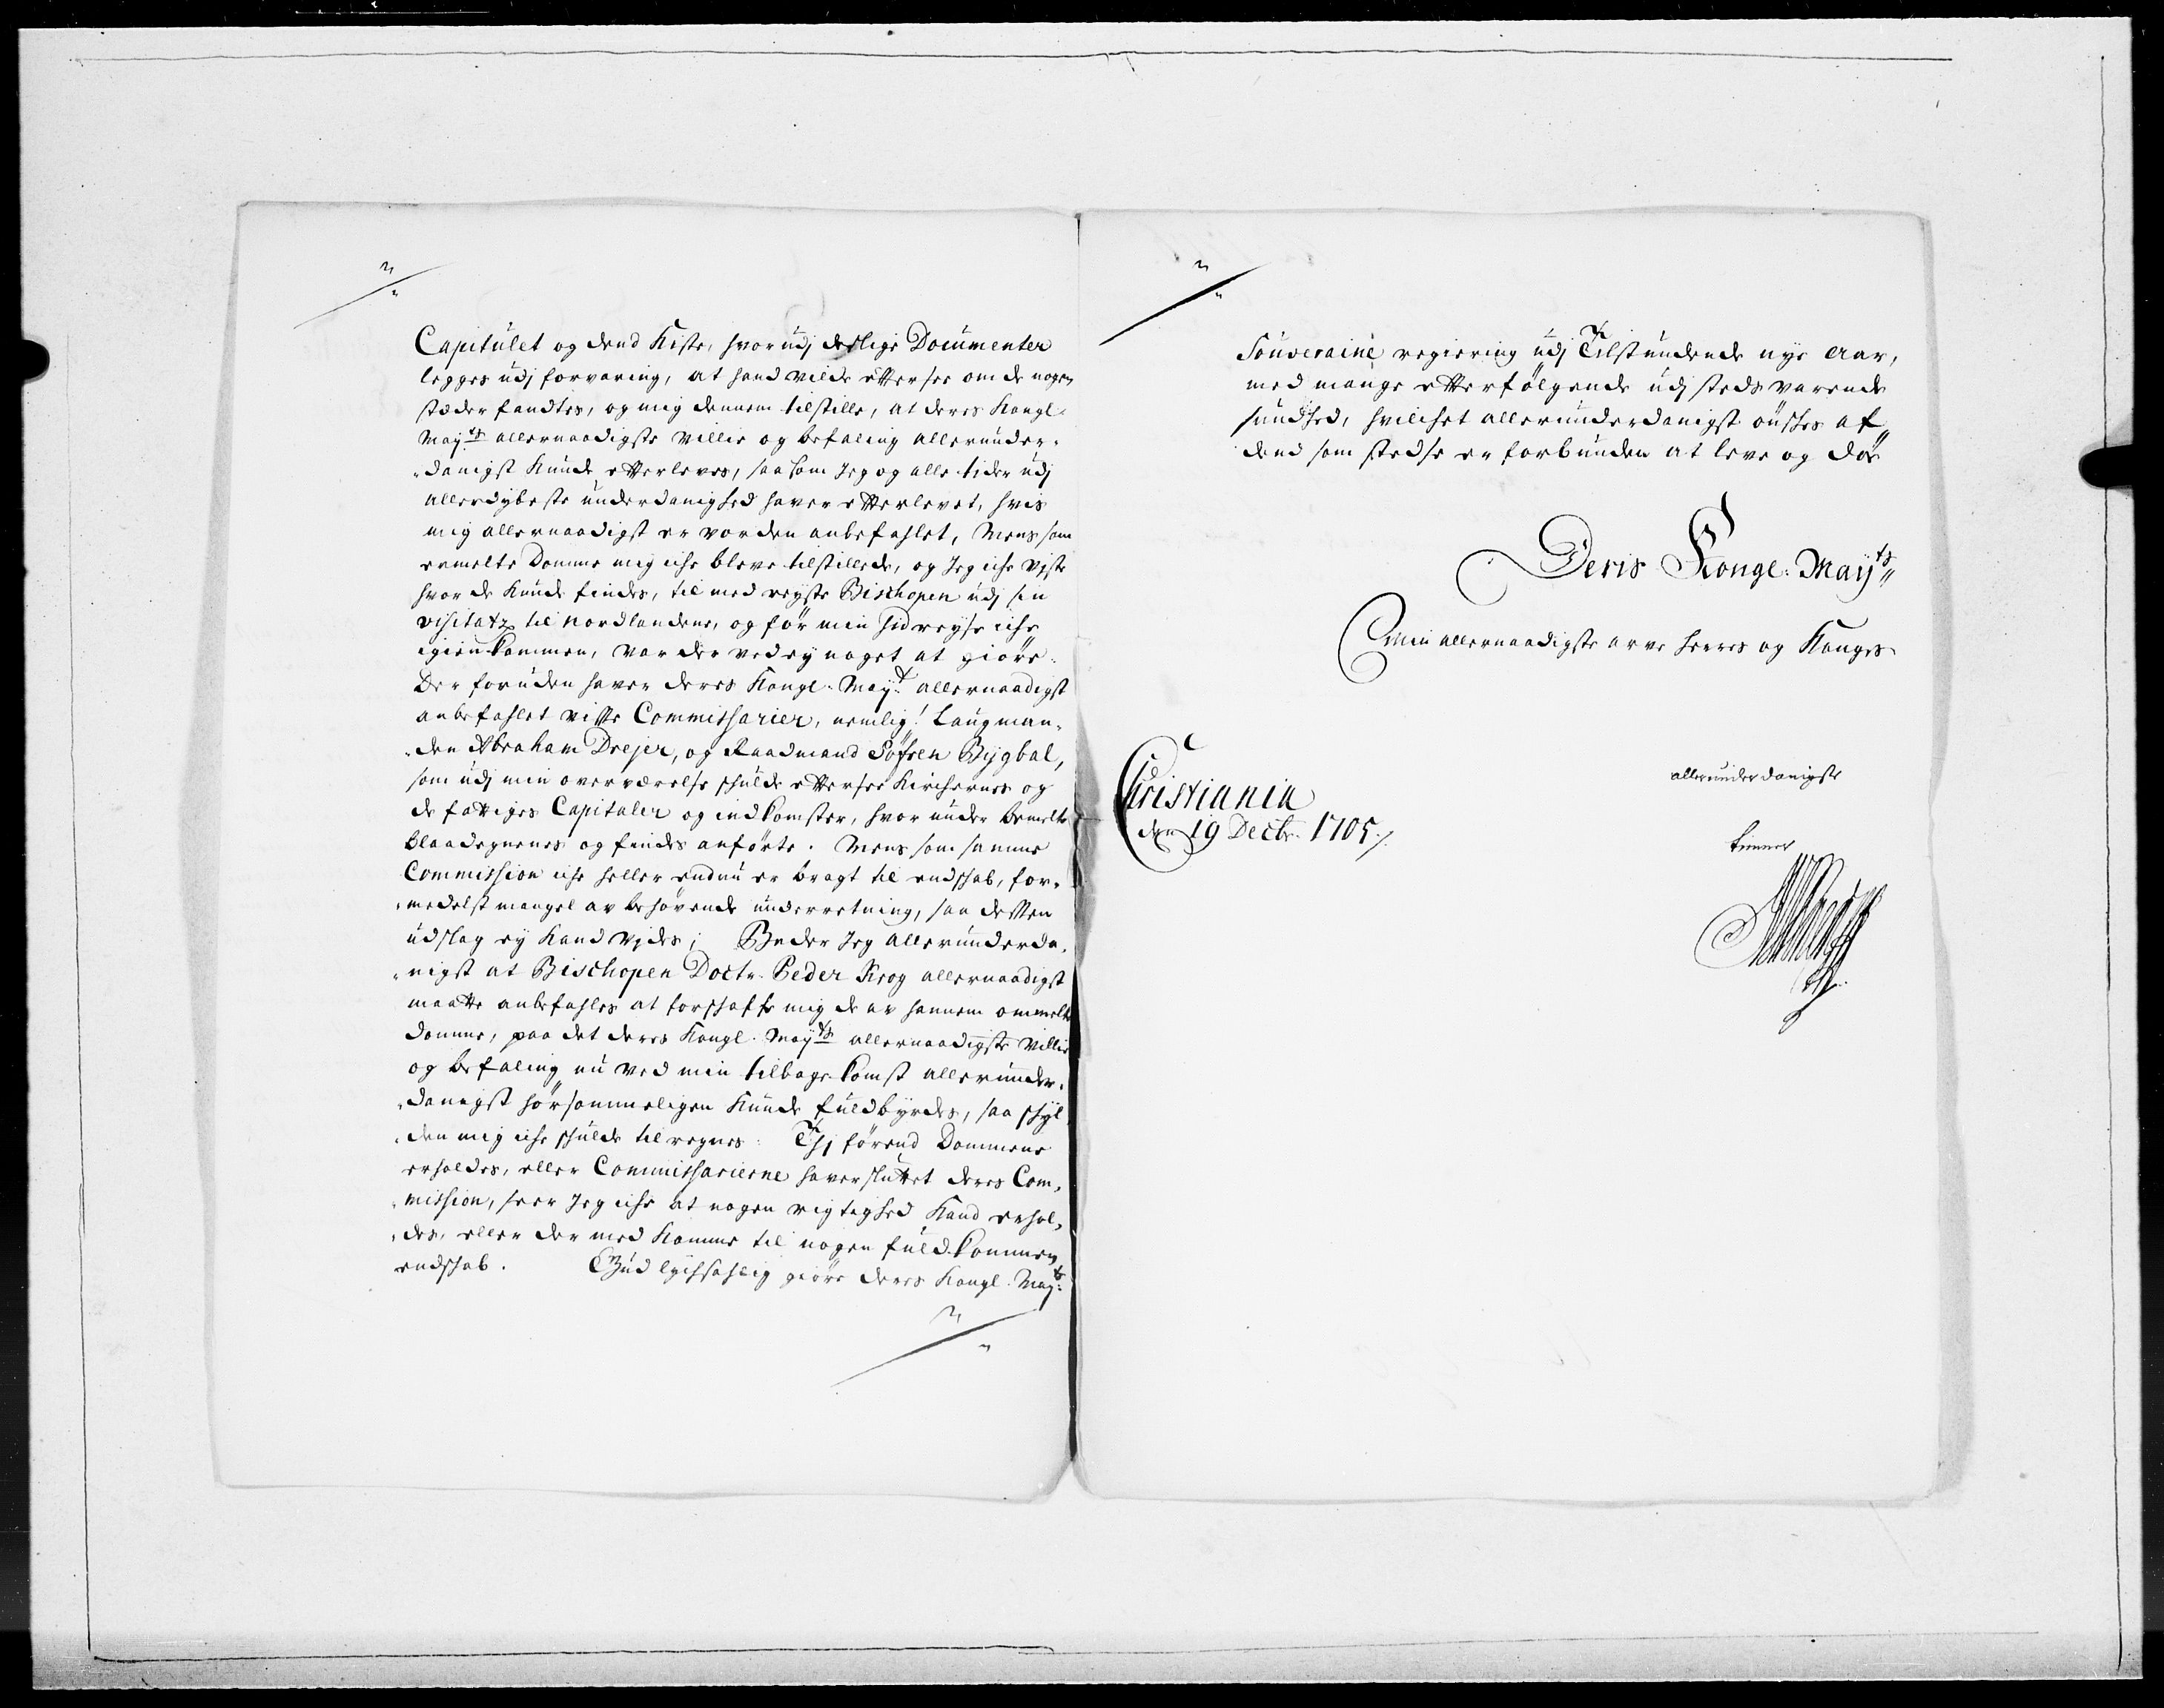 Capitulet og dend Kiste, hvorudj deslige Documenter
legges udj forvaring, at hand vilde effterseé om de nogen
stæder fandtes, og mig dennem tilstille, at deres Kongl.
Mayts allernaadigste villie og befaling allerunder-
danigst kunde effterleves, saasom Jeg og alle tider udj
allerdybeste underdanighed haver effterlevet, hvis
mig allernaadigst er vorden anbefahlet, Mens som
ermelte Domme mig iche bleve tilstillede, og Jeg iche viste
hvor de kunde findes, til med reyste Bischopen udj sin
visitatz til Nordlandene, og før min hidreyse iche
igien kommen, var der ved ey noget at giøre.
Der foruden haver deres Kongl. Mayt allernaadigst
anbefahlet visse Commissarier, nemlig: Laugman-
den Abraham Drejer, og Raadmand Søfren Bygbal,
som udj min overværelse schulde effterseé Kirchernes og
de fattiges Capitaler og indkomster, hvor under bemelte
Claadegnenes og findes anførte. Mens som samme
Commission iche heller endnu er bragt til endschab, for-
medelst mangel av behøvende underretning, saa dessen
udslag ey kand vides; Beder Jeg allerunderda-
nigst at Bischopen Doctr. Peder Krog allernaadigst
maatte anbefahles at forschaffe mig de av hannem ommelte
domme, paa det deres Kongl. Mayts allernaadigste villie
og befaling nu ved min tilbagekomst allerunder-
danigst hørsommeligen kunde fuldbyrdes, saa schyl-
den mig iche schulde tilregnes: Thj førend Dommene
erholdes, eller Commissarierne haver sluttet deres Com-
mission, seer Jeg iche at nogen rigtighed kand erhol-
des, eller der med komme til nogen fuldkommen
endschab. Gud lychsahlig giøre deres Kongl. Mayts
Souveraine regiering udj Tilstundende nye Aar,
med mange effterfølgende udj stedsvarende
sundhed, hvilchet allerunderdanigst ønsches af
dend som stedse er forbunden at leve og døe
Deris Kongl: Mayts
Min allernaadigste arve Herres og Konges
allerunderdanigste
Christiania
den 19 Decbr. 1705.
tienner